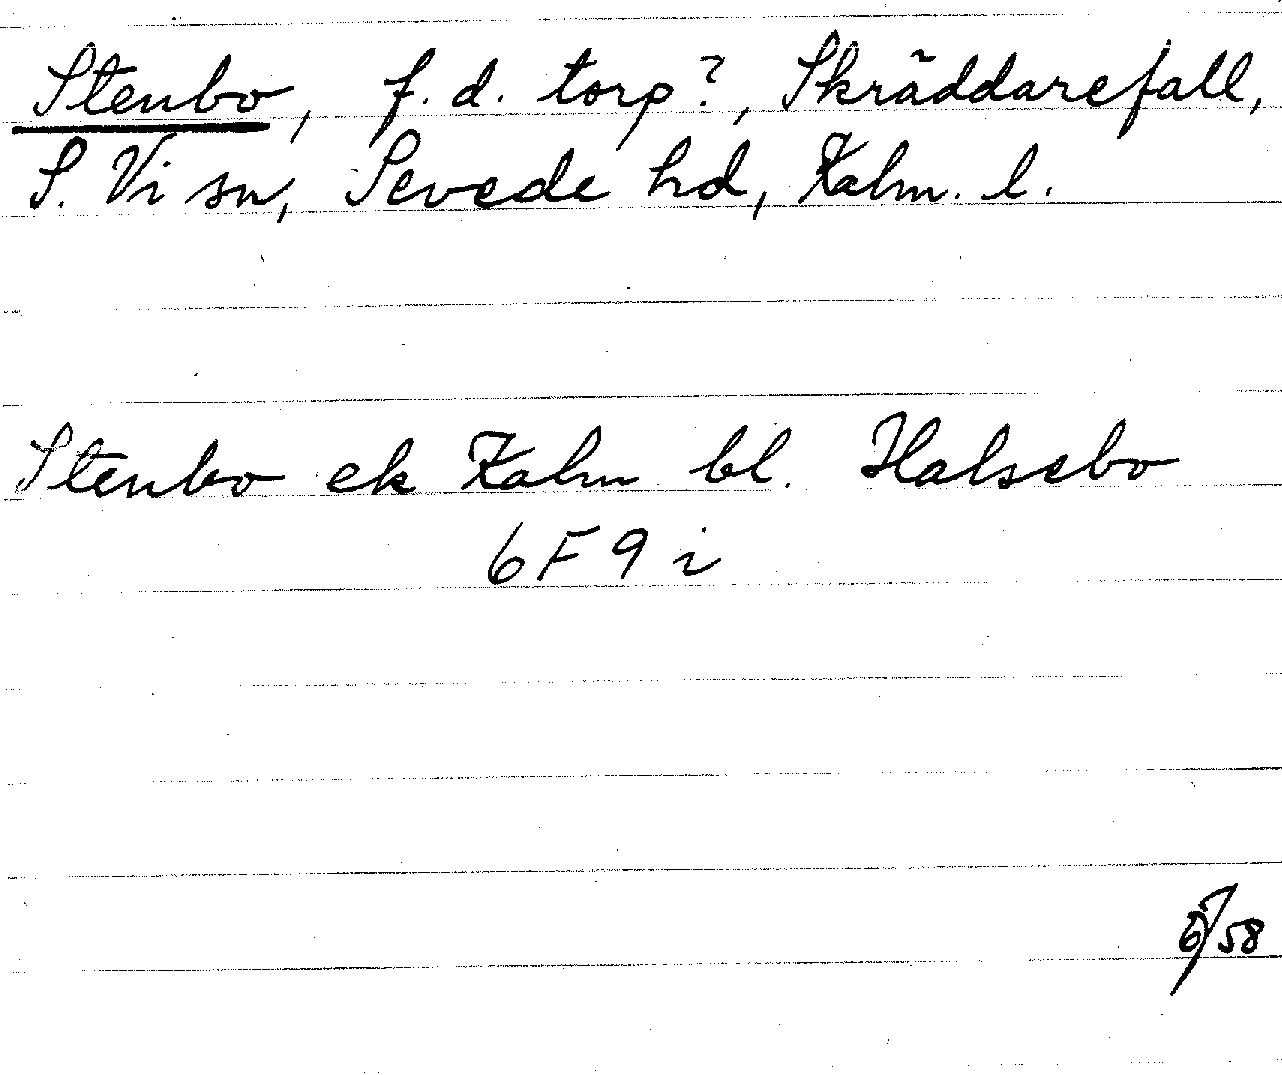 Stenbo, f. d. torp?, Skräddarefall,
S. Vi sn, Sevede hd, Kalm. l.
Stenbo ek Kalm bl. Halsebo
6F9i
58